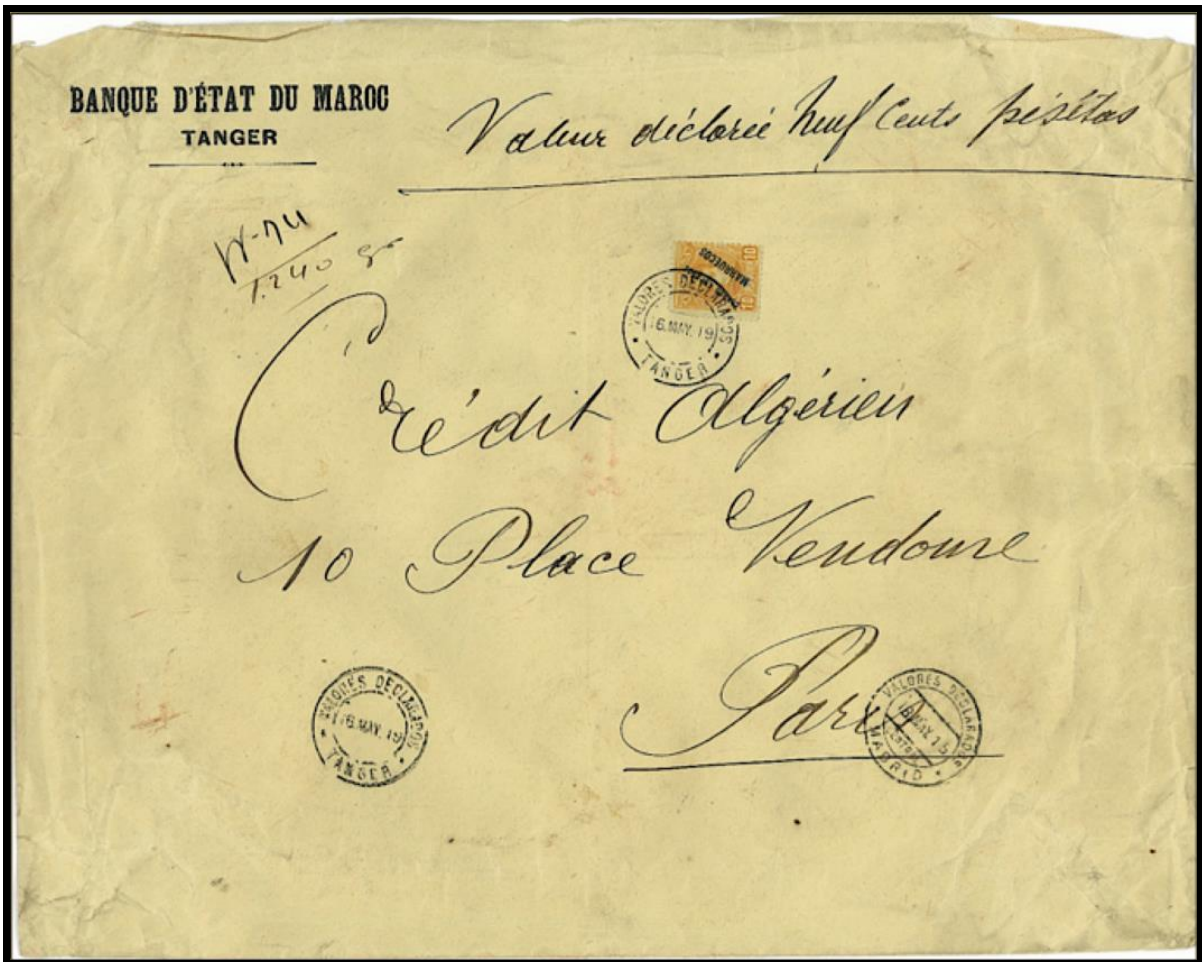 BANQUE D'ÉTAT DU MAROC
TANGER
Valeur déclarée Neuf Cents pésétas
1.240 gr
10
MARRUECOS
10
VALORES DECLARADOS
16.MAY.19
TANGER
Crédit Algérien
10 Place Vendome
Paris
VALORES DECLARADOS
16.MAY.19
TANGER
VALORES DECLARADOS
MADRID